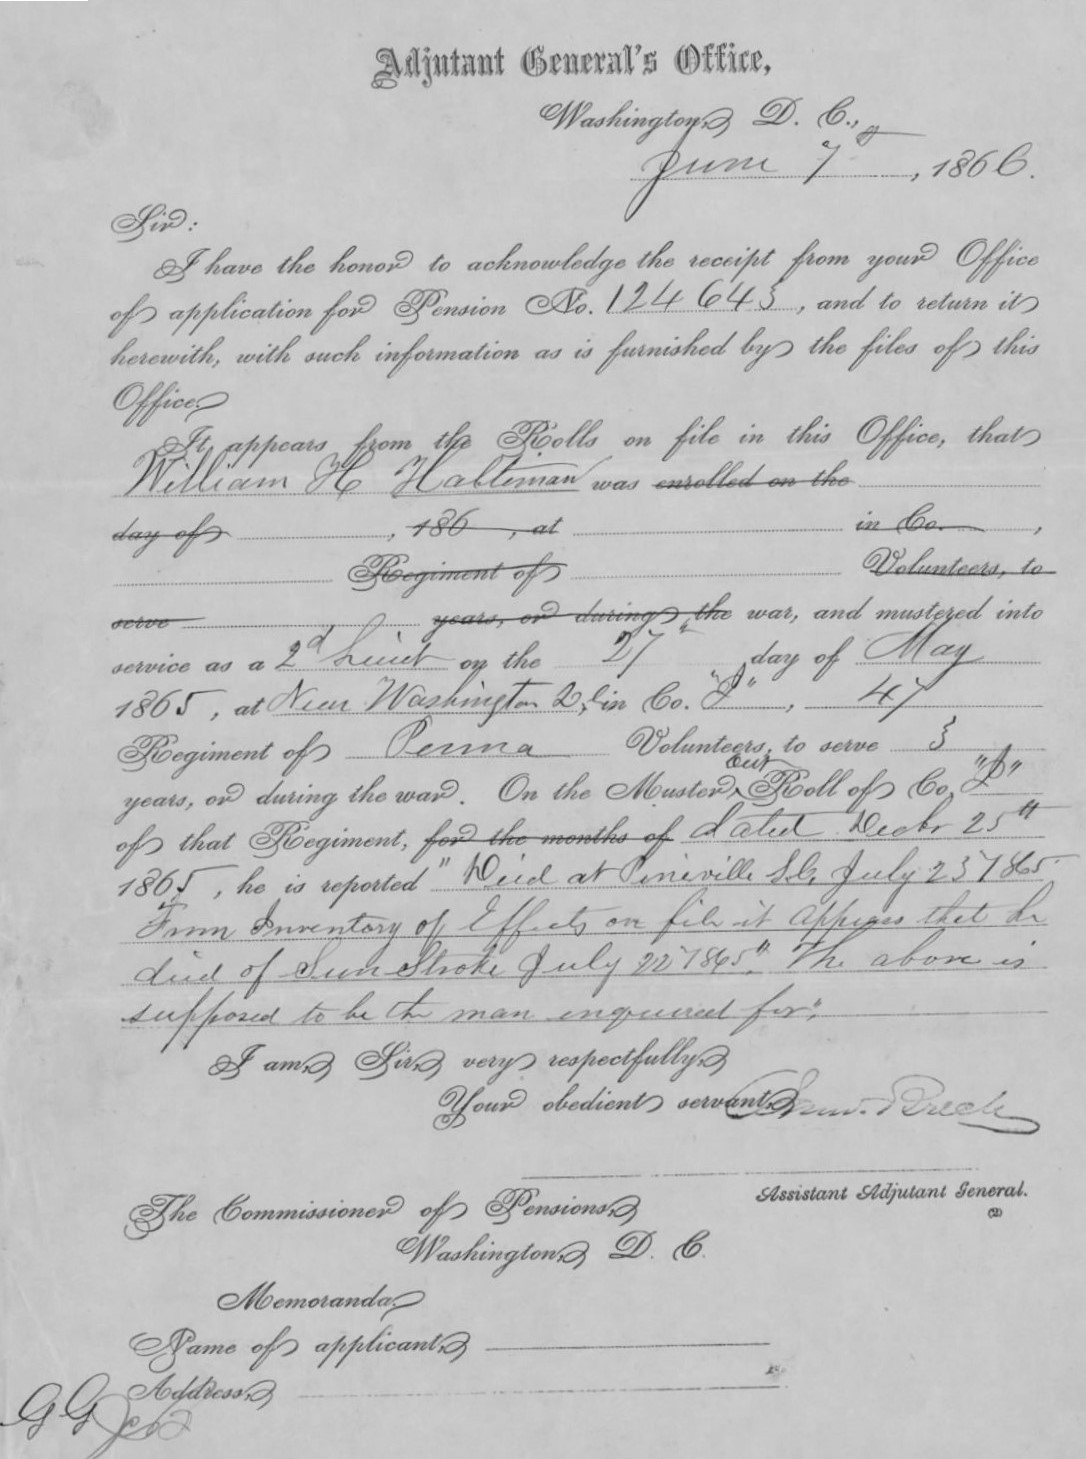 Adjutant General's Office,
Washington, D. C.,
June 7", 1866.
Sir:
I have the honor to acknowledge the receipt from your Office
of application for Pension No. 124643, and to return it
herewith, with such information as is furnished by the files of this
Office.
It appears from the Rolls on file in this Office, that
William H Halteman was enrolled on the
day of , 186 , at in Co. ,
Regiment of Volunteers, to
serve years, or during the war, and mustered into
service as a 2d Lieut on the 27" day of May
1865, at Near Washington D.C. in Co. "I", 47
Regiment of Penna Volunteers, to serve 3
years, or during the war. On the Muster out Roll of Co. "I"
of that Regiment, for the months of dated Decbr 25"
1865, he is reported "Died at Pineville S.C. July 23 1865
From Inventory of Effects on file it appears that he
died of Sun Stroke July 22 1865". The above is
supposed to be the man enquired for".
I am, Sir, very respectfully,
Your obedient servant,
Saml. Breck
Assistant Adjutant General.
(2)
The Commissioner of Pensions,
Washington, D. C.
Memoranda.
Name of applicant,
Address,